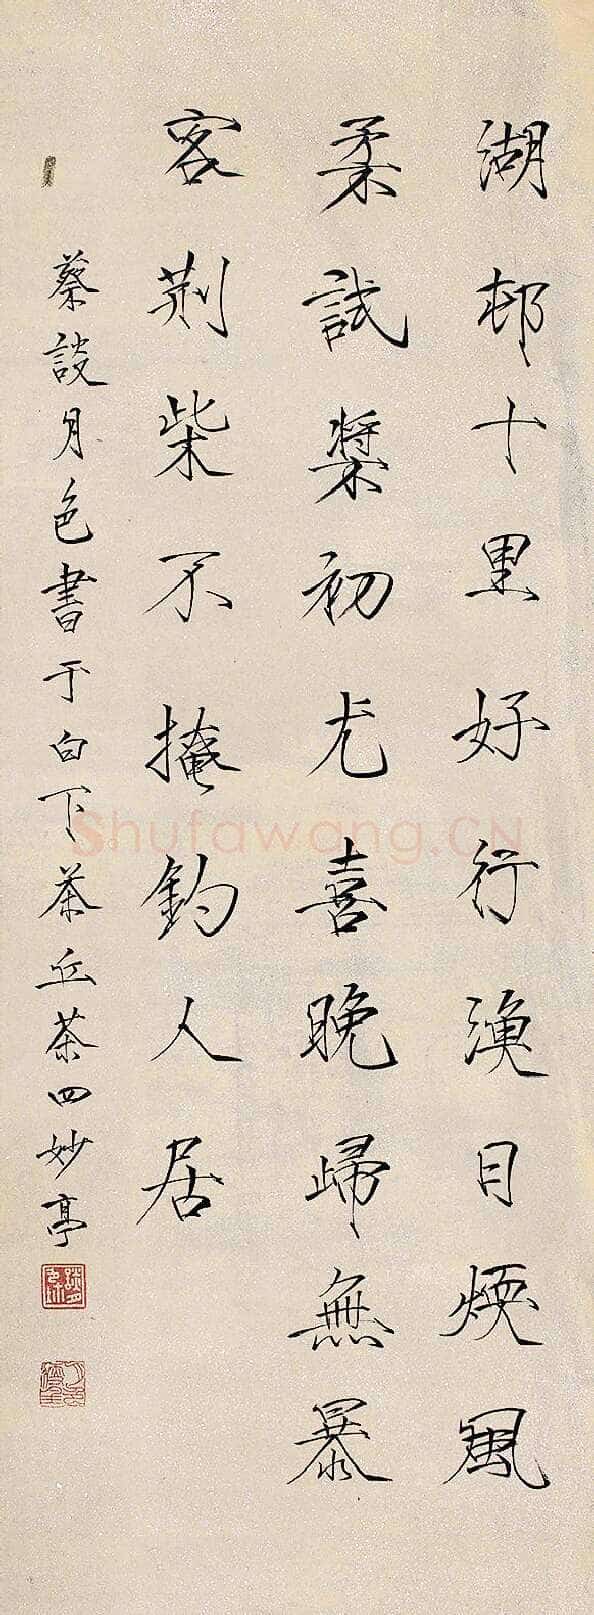 湖邨十里好行漁日煖風
柔試槳初尤喜晚歸無暴
客荆柴不掩釣人居
蔡談月色書于白下茶丘茶四妙亭
Shufawang.CN